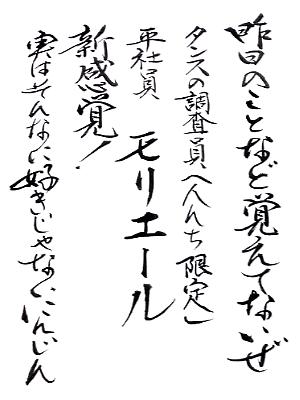 昨日のことなど覚えてないぜ
タンスの調査員へんち限定」
平社員　モリエール
新感覚！
実はそんなに好きじゃないにんじん